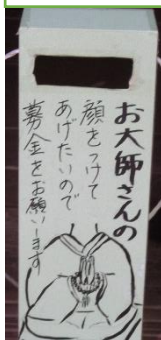 お大師さんの
顔をつけて
あげたいので
募金をお願いします